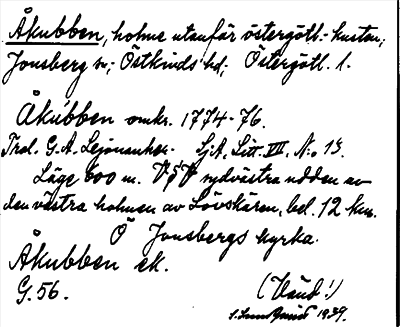 Åkubben, holme utanför östergötl.-kusten,
Jonsberg sn; Östkinds hd; Östergötl. l.
Åkubben omkr. 1774-76.
Trol. G.A. Lejonanker. SjA, Litt. VII, N:o 13.
Läge 600 m. VSV sydvästra udden av
den västra holmen av Lövskären, bel. 12 km.
Ö Jonsbergs kyrka.
Åkubben ek.
G. 56. (Vänd!)
1939.